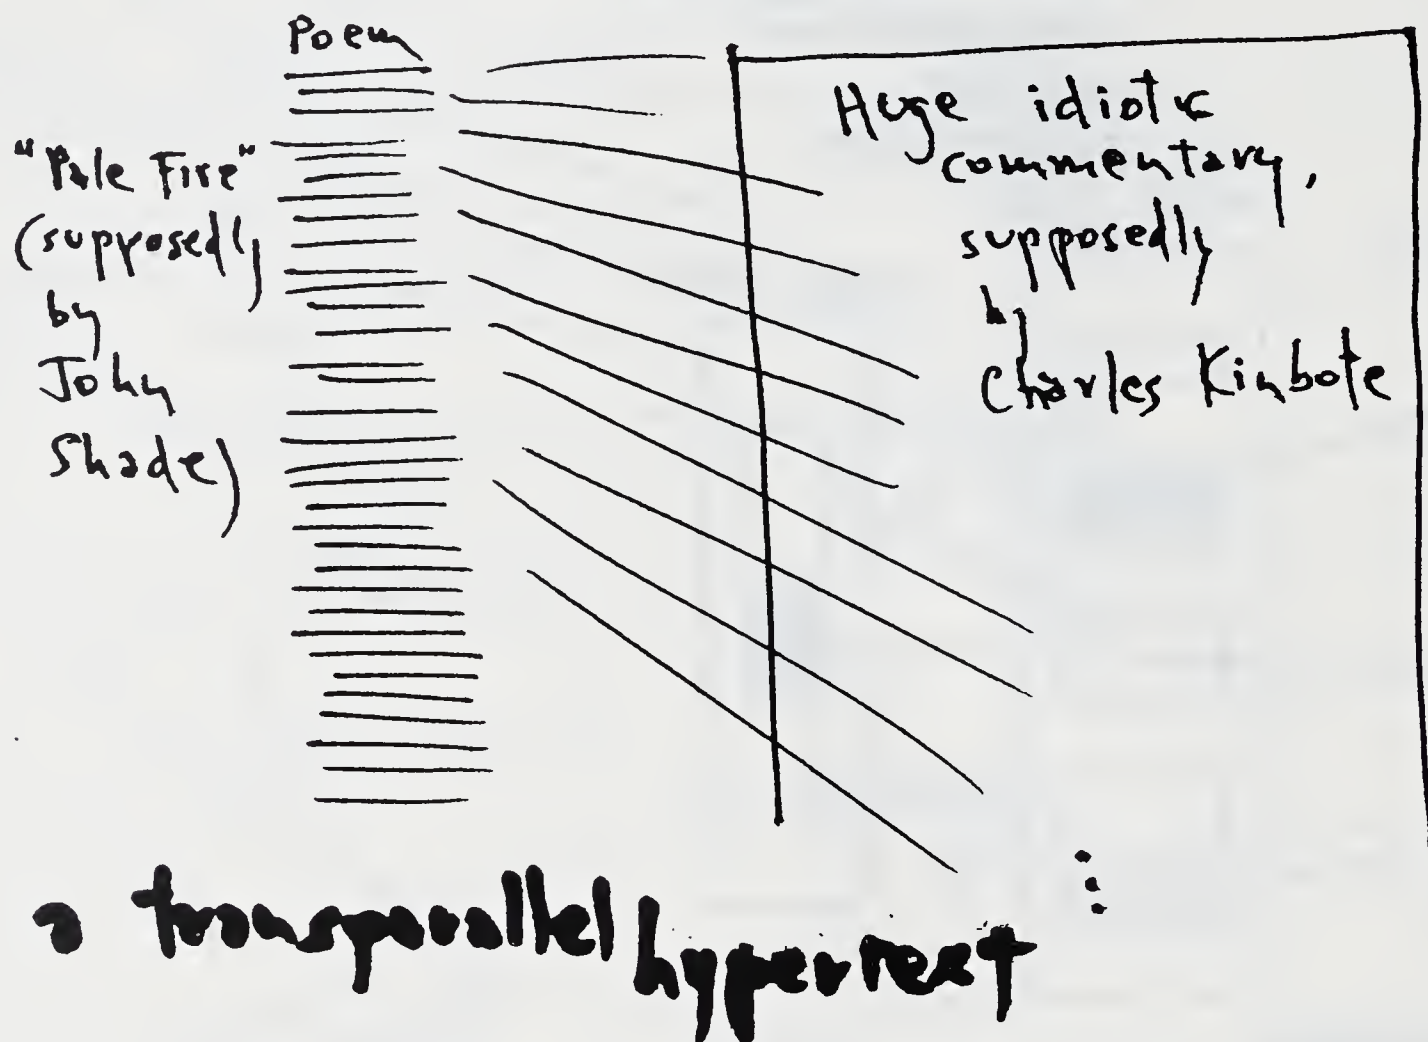 Poem
"Pale Fire"
(supposedly
by
John
Shade)
Huge idiotic
commentary,
supposedly
by
Charles Kinbote
a transparallel hypertext